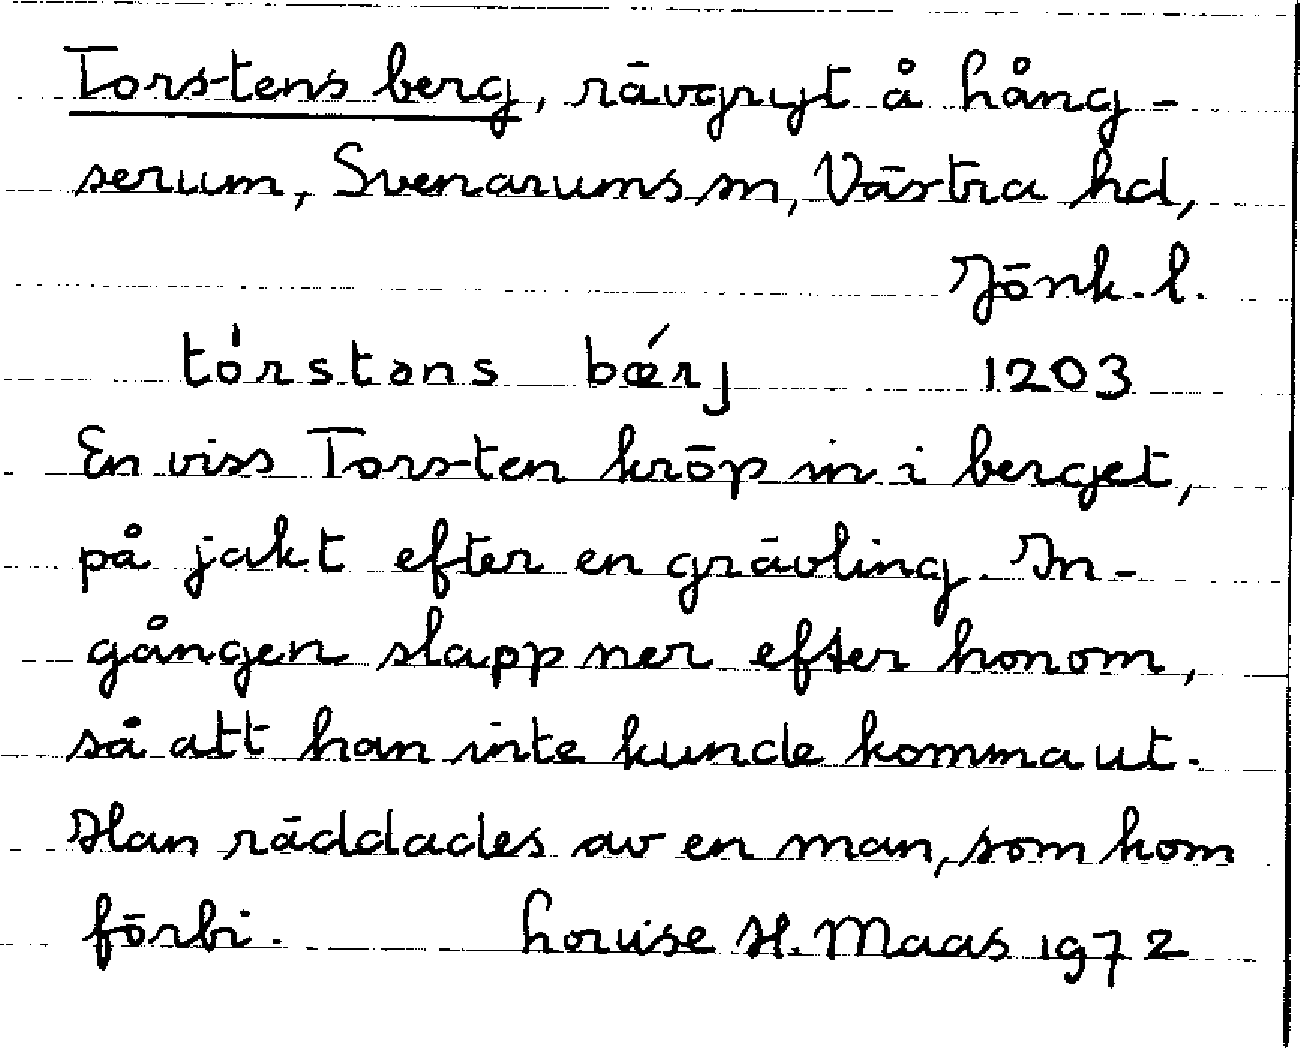 Torstens berg, rävgryt å Lång-
serum, Svenarums sn, Västra hd,
Jönk. l.
tórstəns bǽrj 1203
En viss Torsten kröp in i berget,
på jakt efter en grävling. In-
gången slapp ner efter honom,
så att han inte kunde komma ut.
Han räddades av en man, som kom
förbi. Louise H. Maas 1972